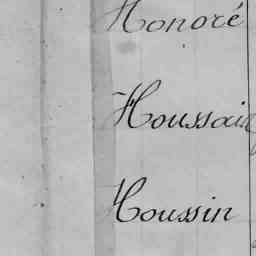 Honoré
Houssain
Houssin